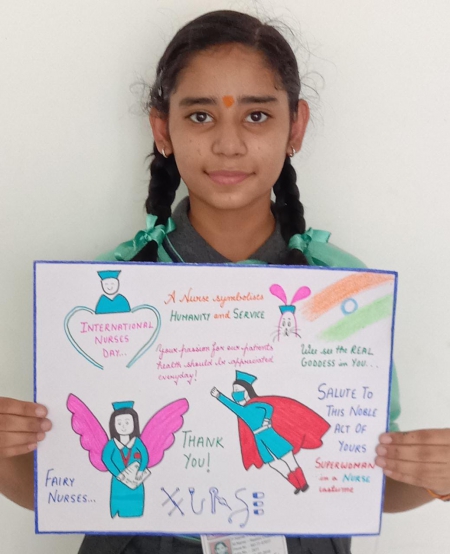 INTERNATIONAL
NURSES
DAY...
A NURSE symbolists
HUMANITY and SERVICE
Your passion for our patients
health should be appreciated
everyday!
Wee see the REAL
GODDESS in YOU...
SALUTE TO
THIS NOBLE
ACT OF
YOURS
SUPERWOMAN
in a NURSE
costume
THANK
YOU!
FAIRY
NURSES...